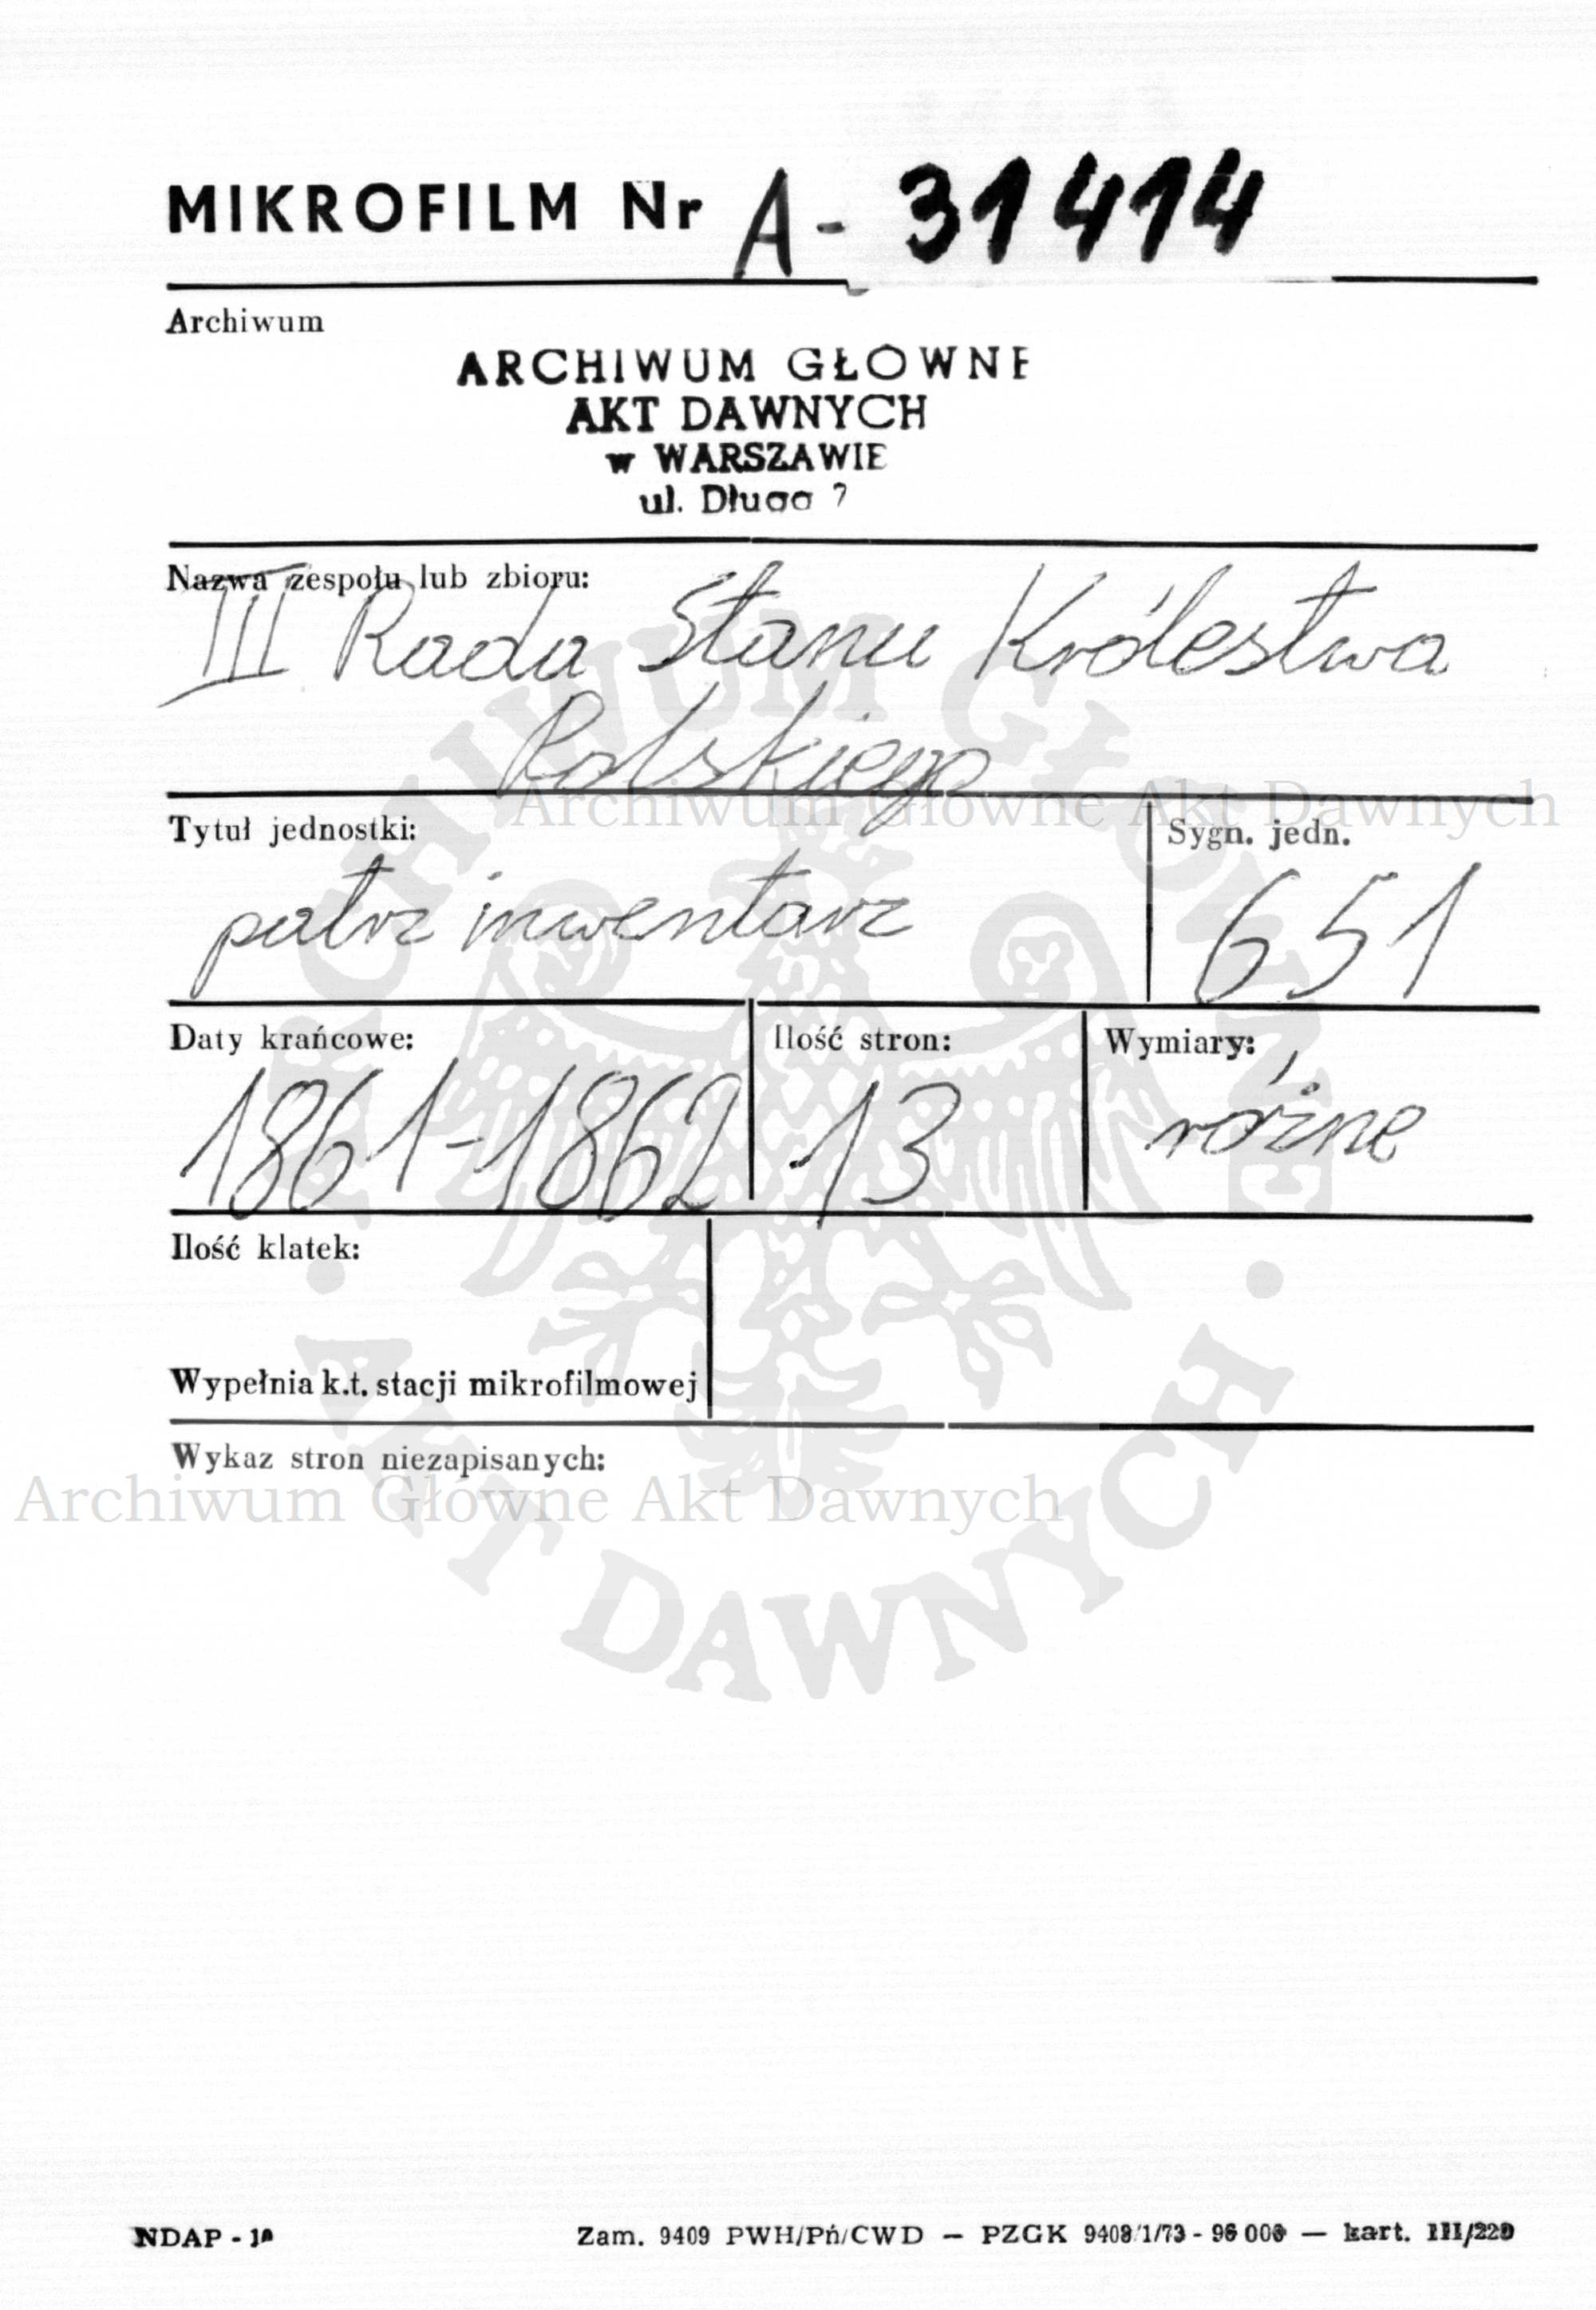 MIKROFILM Nr A- 31414
Archiwum
ARCHIWUM GŁÓWNE
AKT DAWNYCH
w WARSZAWIE
ul. Długa 7
Nazwa zespołu lub zbioru:
III Rada Stanu Królestwa
Polskiego
Archiwum Główne Akt Dawnych
Tytuł jednostki: Sygn. jedn.
patrz inwentarz 651
Daty krańcowe: Ilość stron: Wymiary:
1861-1862 13 różne
Ilość klatek:
Wypełnia k.t. stacji mikrofilmowej
Wykaz stron niezapisanych:
Archiwum Główne Akt Dawnych
ARCHIWUM GŁÓWNE · AKT DAWNYCH ·
NDAP -
Zam. 9409 PWH/Pń/CWD — PZGK 9408/1/73 - — kart. III/220